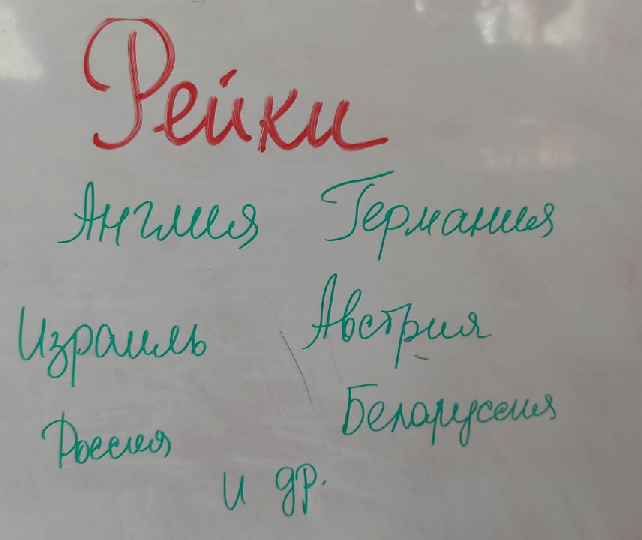 Рейки
Англия Германия
Израиль Австрия
Россия Беларуссия
и др.